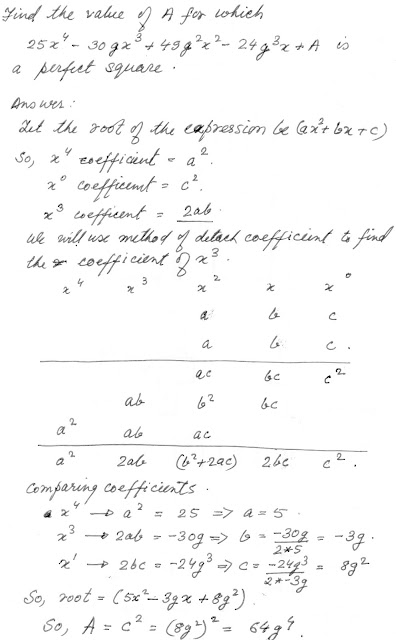 Find the value of A for which
25x⁴ - 30gx³ + 49g²x² - 24g³x + A is
a perfect square.
Answer:
Let the root of the expression be (ax² + bx + c)
So, x⁴ coefficient = a².
x⁰ coefficient = c².
x³ coefficient = 2ab.
We will use method of detach coefficient to find
the coefficient of x³.
x⁴ x³ x² x x⁰
a b c
a b c.
ac bc c²
ab b² bc
a² ab ac
a² 2ab (b²+2ac) 2bc c².
Comparing coefficients.
x⁴ → a² = 25 => a = 5.
x³ → 2ab = -30g => b = -30g/2*5 = -3g.
x¹ → 2bc = -24g³ => c = -24g³/2*-3g = 8g²
So, root = (5x² - 3gx + 8g²)
So, A = c² = (8g²)² = 64g⁴.